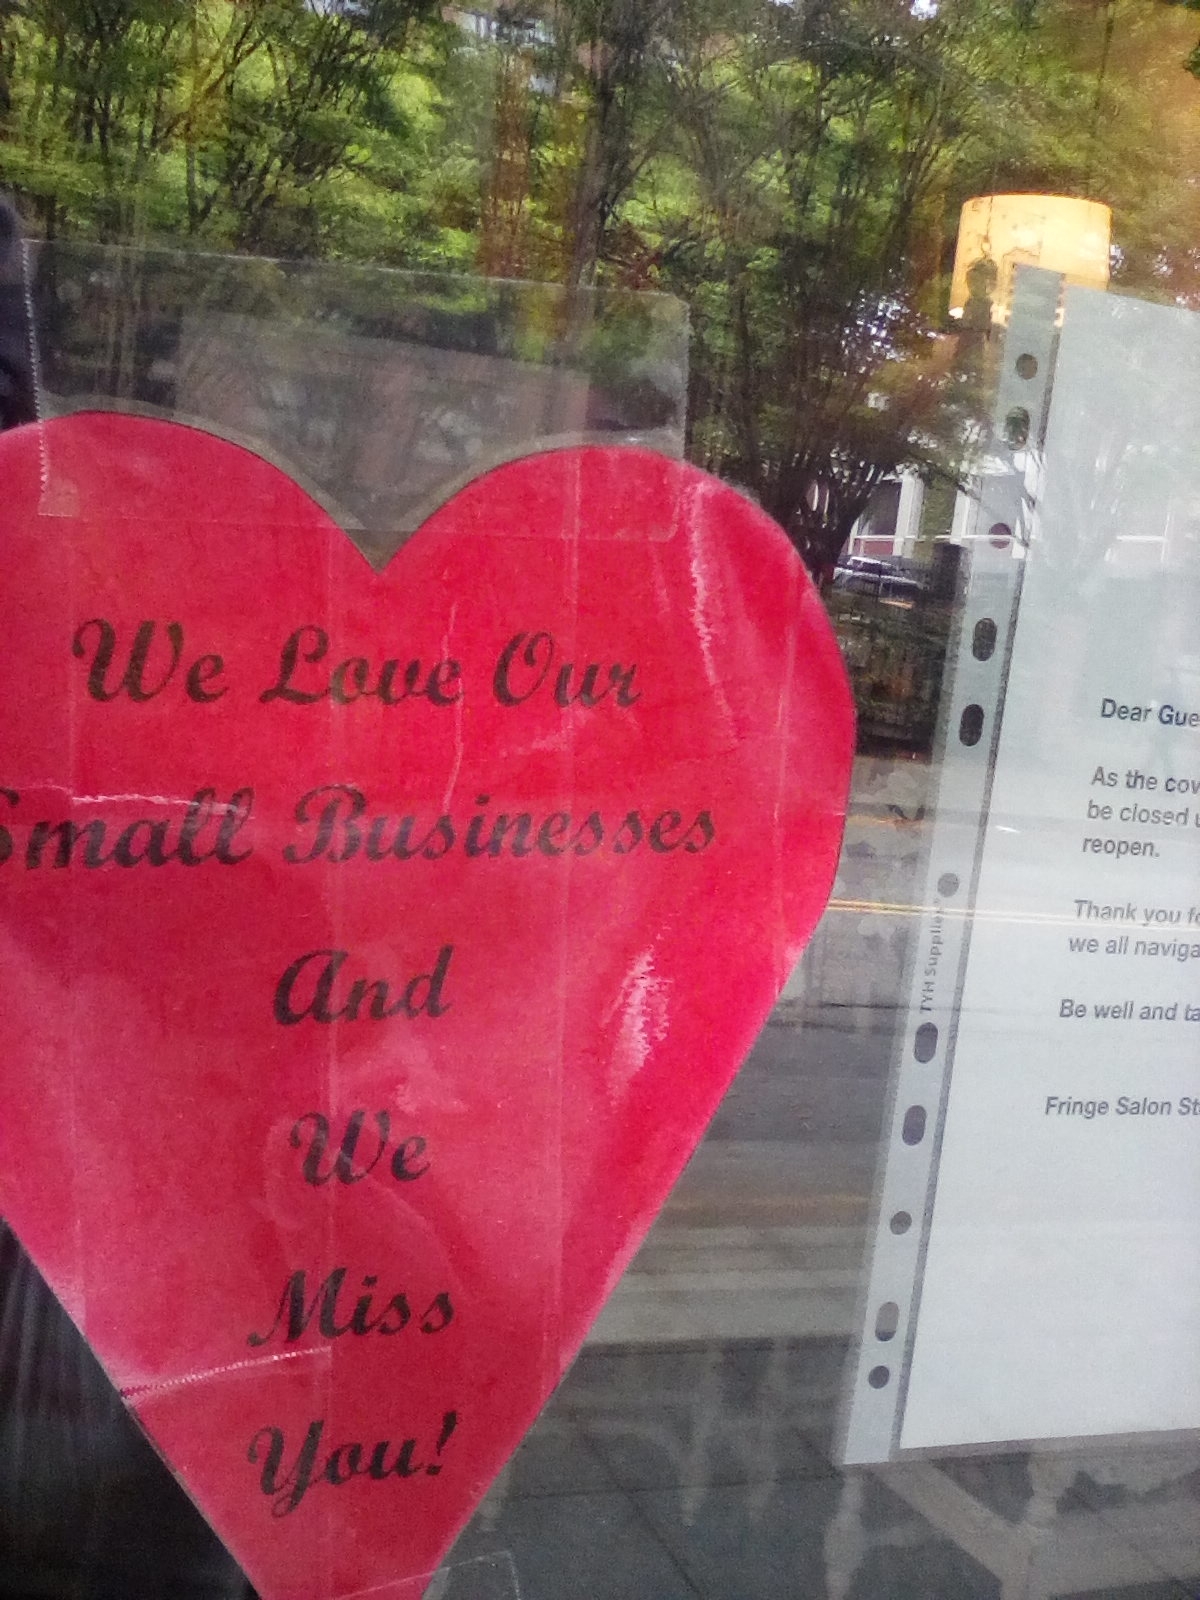 We Love Our
Small Businesses
And
We
Miss
You!
Dear Gue
As the cov
be closed u
reopen.
Thank you fo
we all naviga
Be well and ta
Fringe Salon St
TYH Supplies